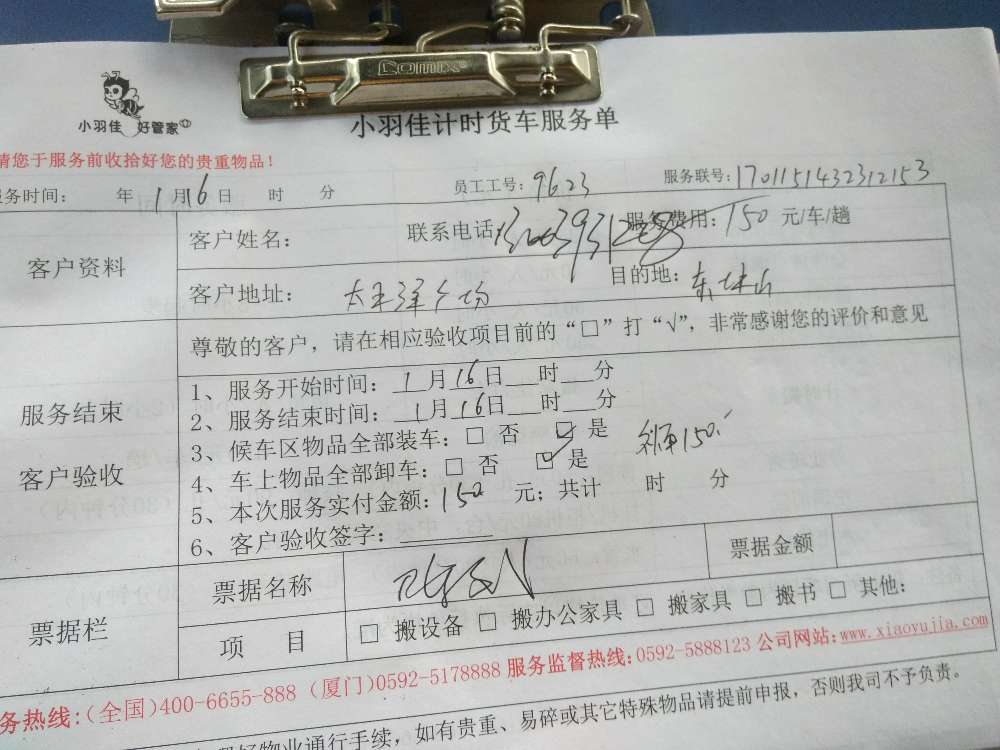 Comix
小羽佳 好管家
小羽佳计时货车服务单
请您于服务前收拾好您的贵重物品！
服务时间： 年1月16日 时 分 员工工号：9623 服务联号：1701151432312153
客户资料
客户姓名： 联系电话 服务费用：150 元/车/趟
客户地址：太平洋广场 目的地：东坪山
服务结束
客户验收
尊敬的客户，请在相应验收项目前的“□”打“√”，非常感谢您的评价和意见
1、服务开始时间：1月16日___时___分
2、服务结束时间：1月16日___时___分
3、候车区物品全部装车：□ 否 □ 是
4、车上物品全部卸车：□ 否 □ 是
150
5、本次服务实付金额：150 元；共计 时 分
6、客户验收签字：
票据栏
票据名称 票据金额
项 目 □ 搬设备 □ 搬办公家具 □ 搬家具 □ 搬书 □ 其他：
务热线：（全国）400-6655-888 （厦门）0592-5178888 服务监督热线：0592-5888123 公司网站：www.xiaoyujia.com
好物业通行手续，如有贵重、易碎或其它特殊物品请提前申报，否则我司不予负责。